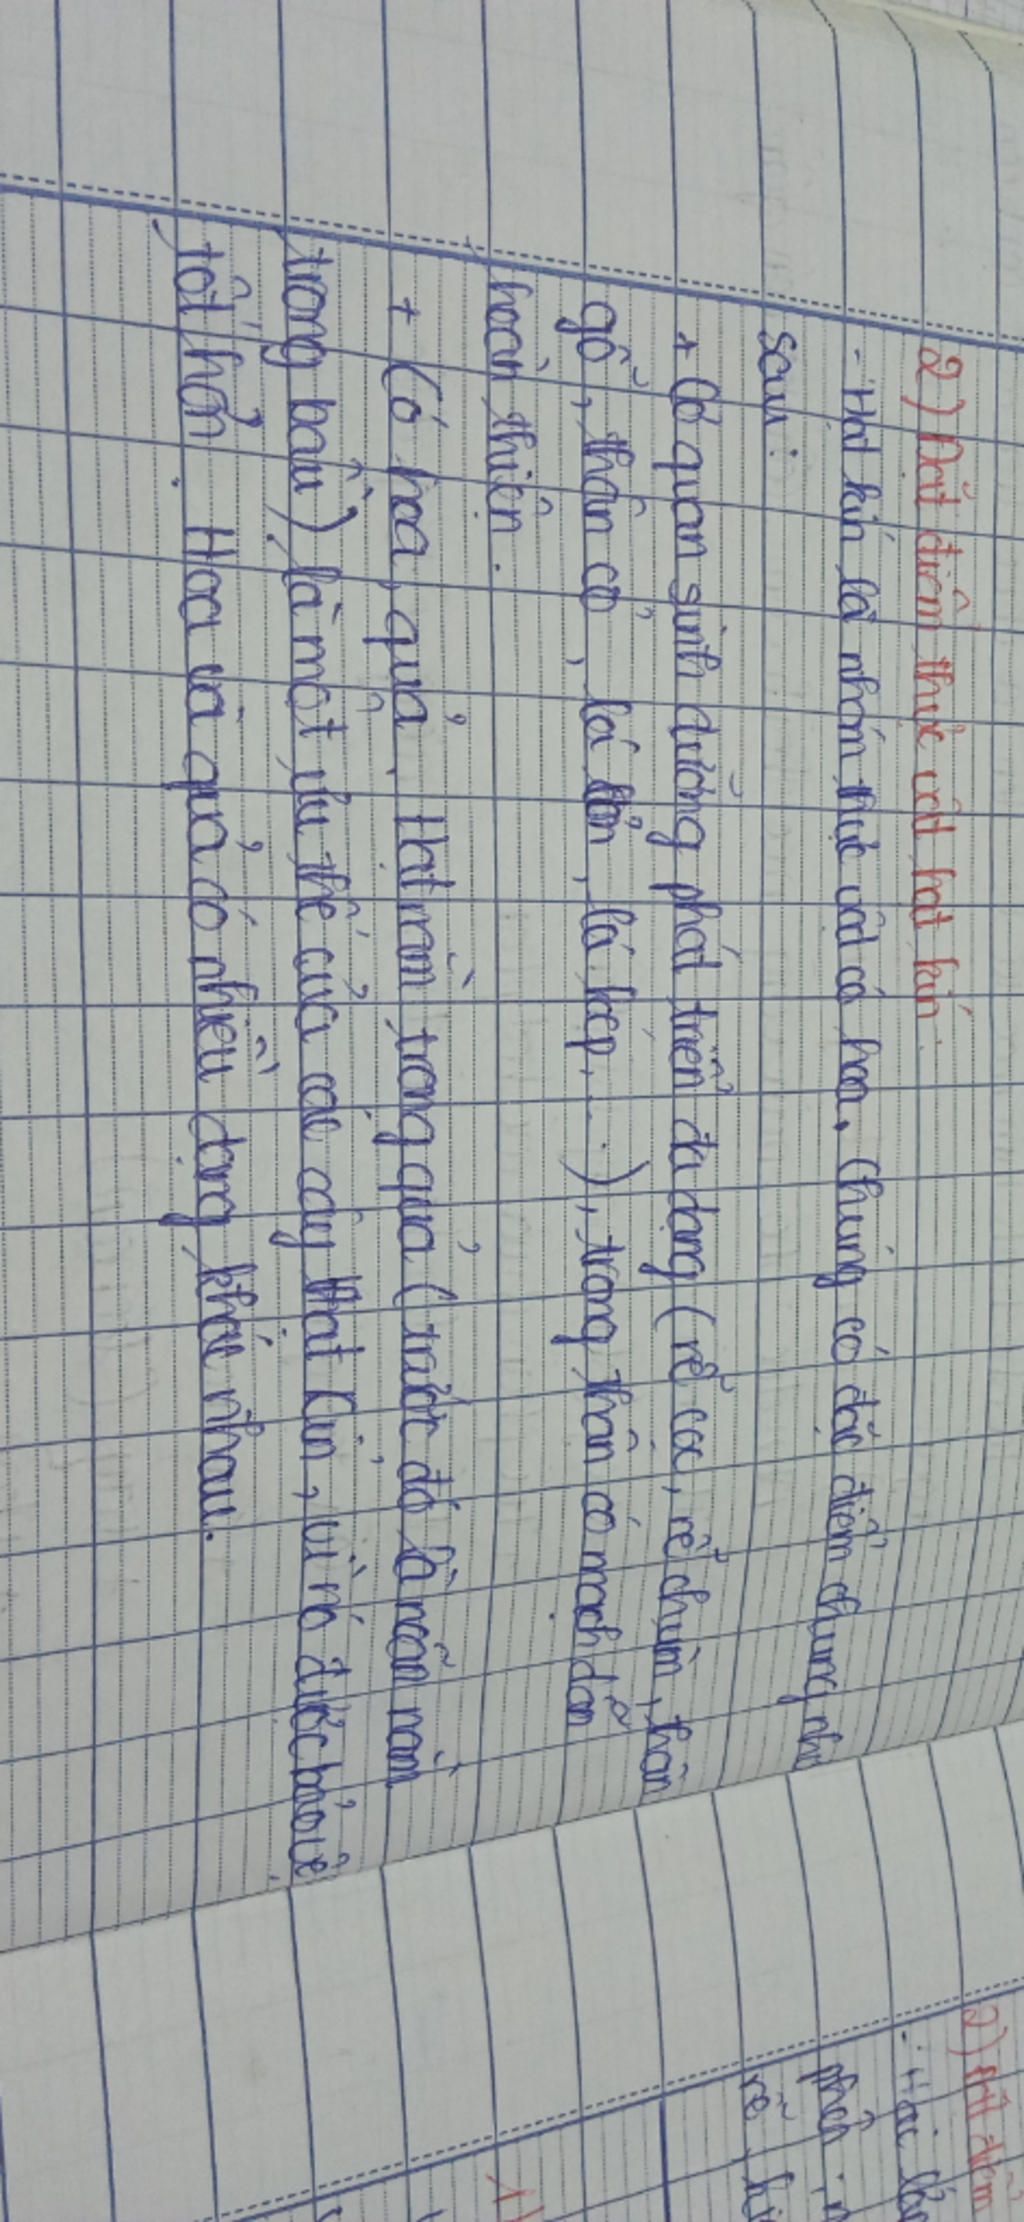 2) Đặt điểm thực vật hạt kín.
- Hạt kín là nhóm thực vật có hoa. Chúng có đặc điểm chung như
sau:
+ Cơ quan sinh dưỡng phát triển đa dạng (rễ cọc, rễ chùm, thân
gỗ, thân cỏ, lá đơn, lá kép,...), trong thân có mạch dẫn
hoàn thiện.
+ Có hoa, quả. Hạt nằm trong quả (trước đó là noãn nằm
trong bầu) là một ưu thế của các cây hạt kín, vì nó được bảo vệ
tốt hơn. Hoa và quả có nhiều dạng khác nhau.
2)
rễ
1)